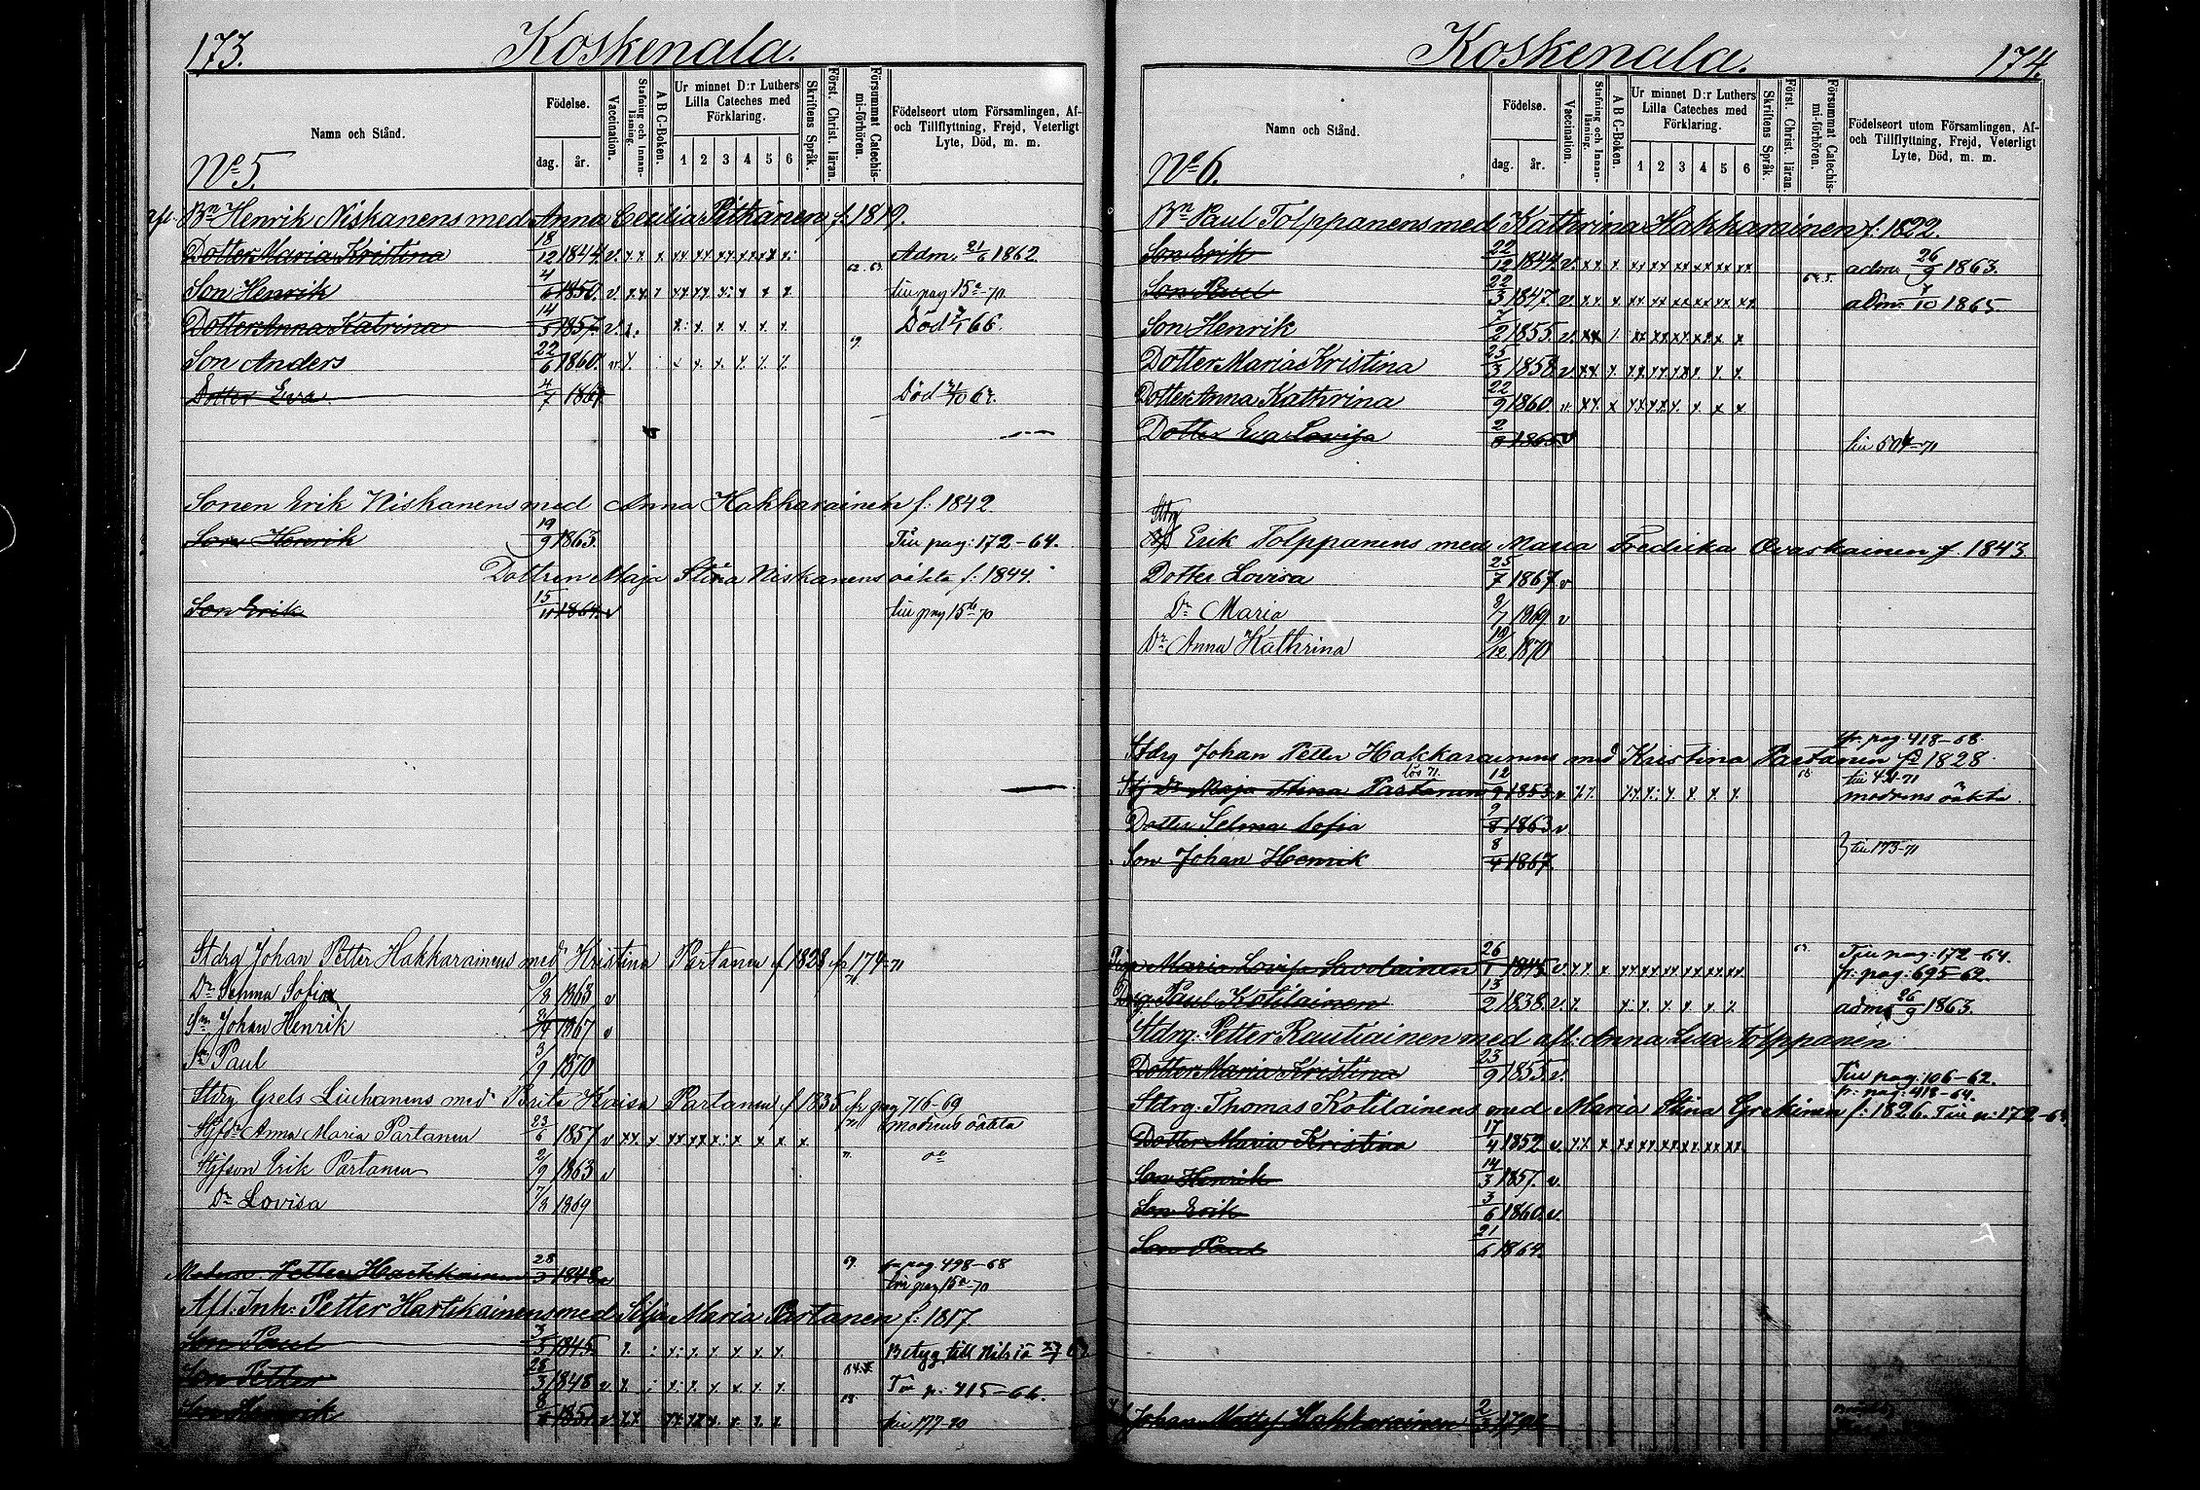 173.
Koskenala.
Namn och Stånd.
Födelse.
dag.
år.
Vaccination.
Stafning och Innanläsning.
A B C-Boken.
Ur minnet D:r Luthers Lilla Cateches med Förklaring.
1 2 3 4 5 6
Skriftens Språk.
Först. Christ. läran.
Försummat Catechismi-förhören.
Födelseort utom Församlingen, Af- och Tillflyttning, Frejd, Veterligt Lyte, Död, m. m.
No 5.
Bn Henrik Niskanens med Anna Cecilia Pitkänen f. 1819.
Dotter Maria Kristina 18/12 1844 v. Adm. 21/6 1862
Son Henrik 4/6 1850. v. 62. 63. tiu pag 15a-70
Dotter Anna Katrina 14/5 1857 v. Död 66.
Son Anders 22/6 1860.
Dotter Eva 4/7 Död
Sonen Erik Niskanens med Anna Hakkarainen f. 1842
Son Henrik 19/9 1863. Tiu pag: 172-64.
Dottren Maja Stina Niskanens oäkta f. 1844.
Son Erik 15/11 1864. v tiu pag 15b-70
Stdrg Johan Petter Hakkarainens med Kristina Partanen f 1828 fr 174-71
Dr Selma Sofia 1863 v
Sn Johan Henrik 1867 v
Sn Paul 3/9 1870
Stdrg Grels Liuhanens med Brita Kaisa Partanen f 1835 fr pag 716-69
Stjfdr Anna Maria Partanen 23/6 1857 v modrens oäkta
Stjfson Erik Partanen 2/9 1863 v
Dr Lovisa 7/3 1869
Petter 28/3 1848 v 69. fr pag. 498-68
tiu pag 15a-70
Aft. Inh: Petter Hartikainens med Sofia Maria Partanen f: 1817
Son Paul 3/3 1845. Betyg till Nilsiä
Son Petter 28/3 1848 v Tiu p: 415-66.
Son Henrik 8 tiu 177-70
Koskenala.
174.
Namn och Stånd.
Födelse.
dag.
år.
Vaccination.
Stafning och Innanläsning.
A B C-Boken.
Ur minnet D:r Luthers Lilla Cateches med Förklaring.
1 2 3 4 5 6
Skriftens Språk.
Först. Christ. läran.
Försummat Catechismi-förhören.
Födelseort utom Församlingen, Af- och Tillflyttning, Frejd, Veterligt Lyte, Död, m. m.
No 6.
Bn Paul Tolppanens med Kathrina Hakkarainen f: 1822.
Son Erik 22/12 1844 v. adm 26/9 1863.
Son Paul 22/3 1847 v. adm. 1865.
Son Henrik 7/2 1855 v.
Dotter Maria Kristina 23/3 1858 v
Dotter Anna Kathrina 22/9 1860 v.
Dotter Eva Lovisa 2/8 1865 v
Stdrg
Erik Tolppanens med Maria Fredrika Ovaskainen f 1843
Dotter Lovisa 25/7 1867 v
Dr Maria 8/7 1869 v
Dr Anna Kathrina 19/12 1870
fr. pag. 418-68
Stdrg Johan Petter Hakkarainens med Kristina Partanen f 1828
Maja Stina Partanen 12/9 1853 v modrens oäkta.
Dotter Selma Sofia 9/8 1863 v
Son Johan Henrik 8/4 1867. tiu 173-71
Piga Maria Lovisa Savolainen 26/1 1845 v. 63. Tiu pag: 172-64.
fr: pag: 695-62.
Drg. Paul Kotilainen 13/2 1838. v. adm 26/9 1863.
Stdrg. Petter Rautiainen med afl: Anna Lisa Tolppanen
Dotter Maria Kristina 23/9 1855 v. Tiu pag: 106-62.
fr: pag: 418-64.
Stdrg. Thomas Kotilainens med Maria Stina Grekinen f: 1826. Tiu p: 172-
Dotter Maria Kristina 17/4 1852 v.
Son Henrik 14/3 1857. v.
Son Erik 3/6 1860. v.
Son Paul 21/6 1864.
Johan Hakkarainen 2/3